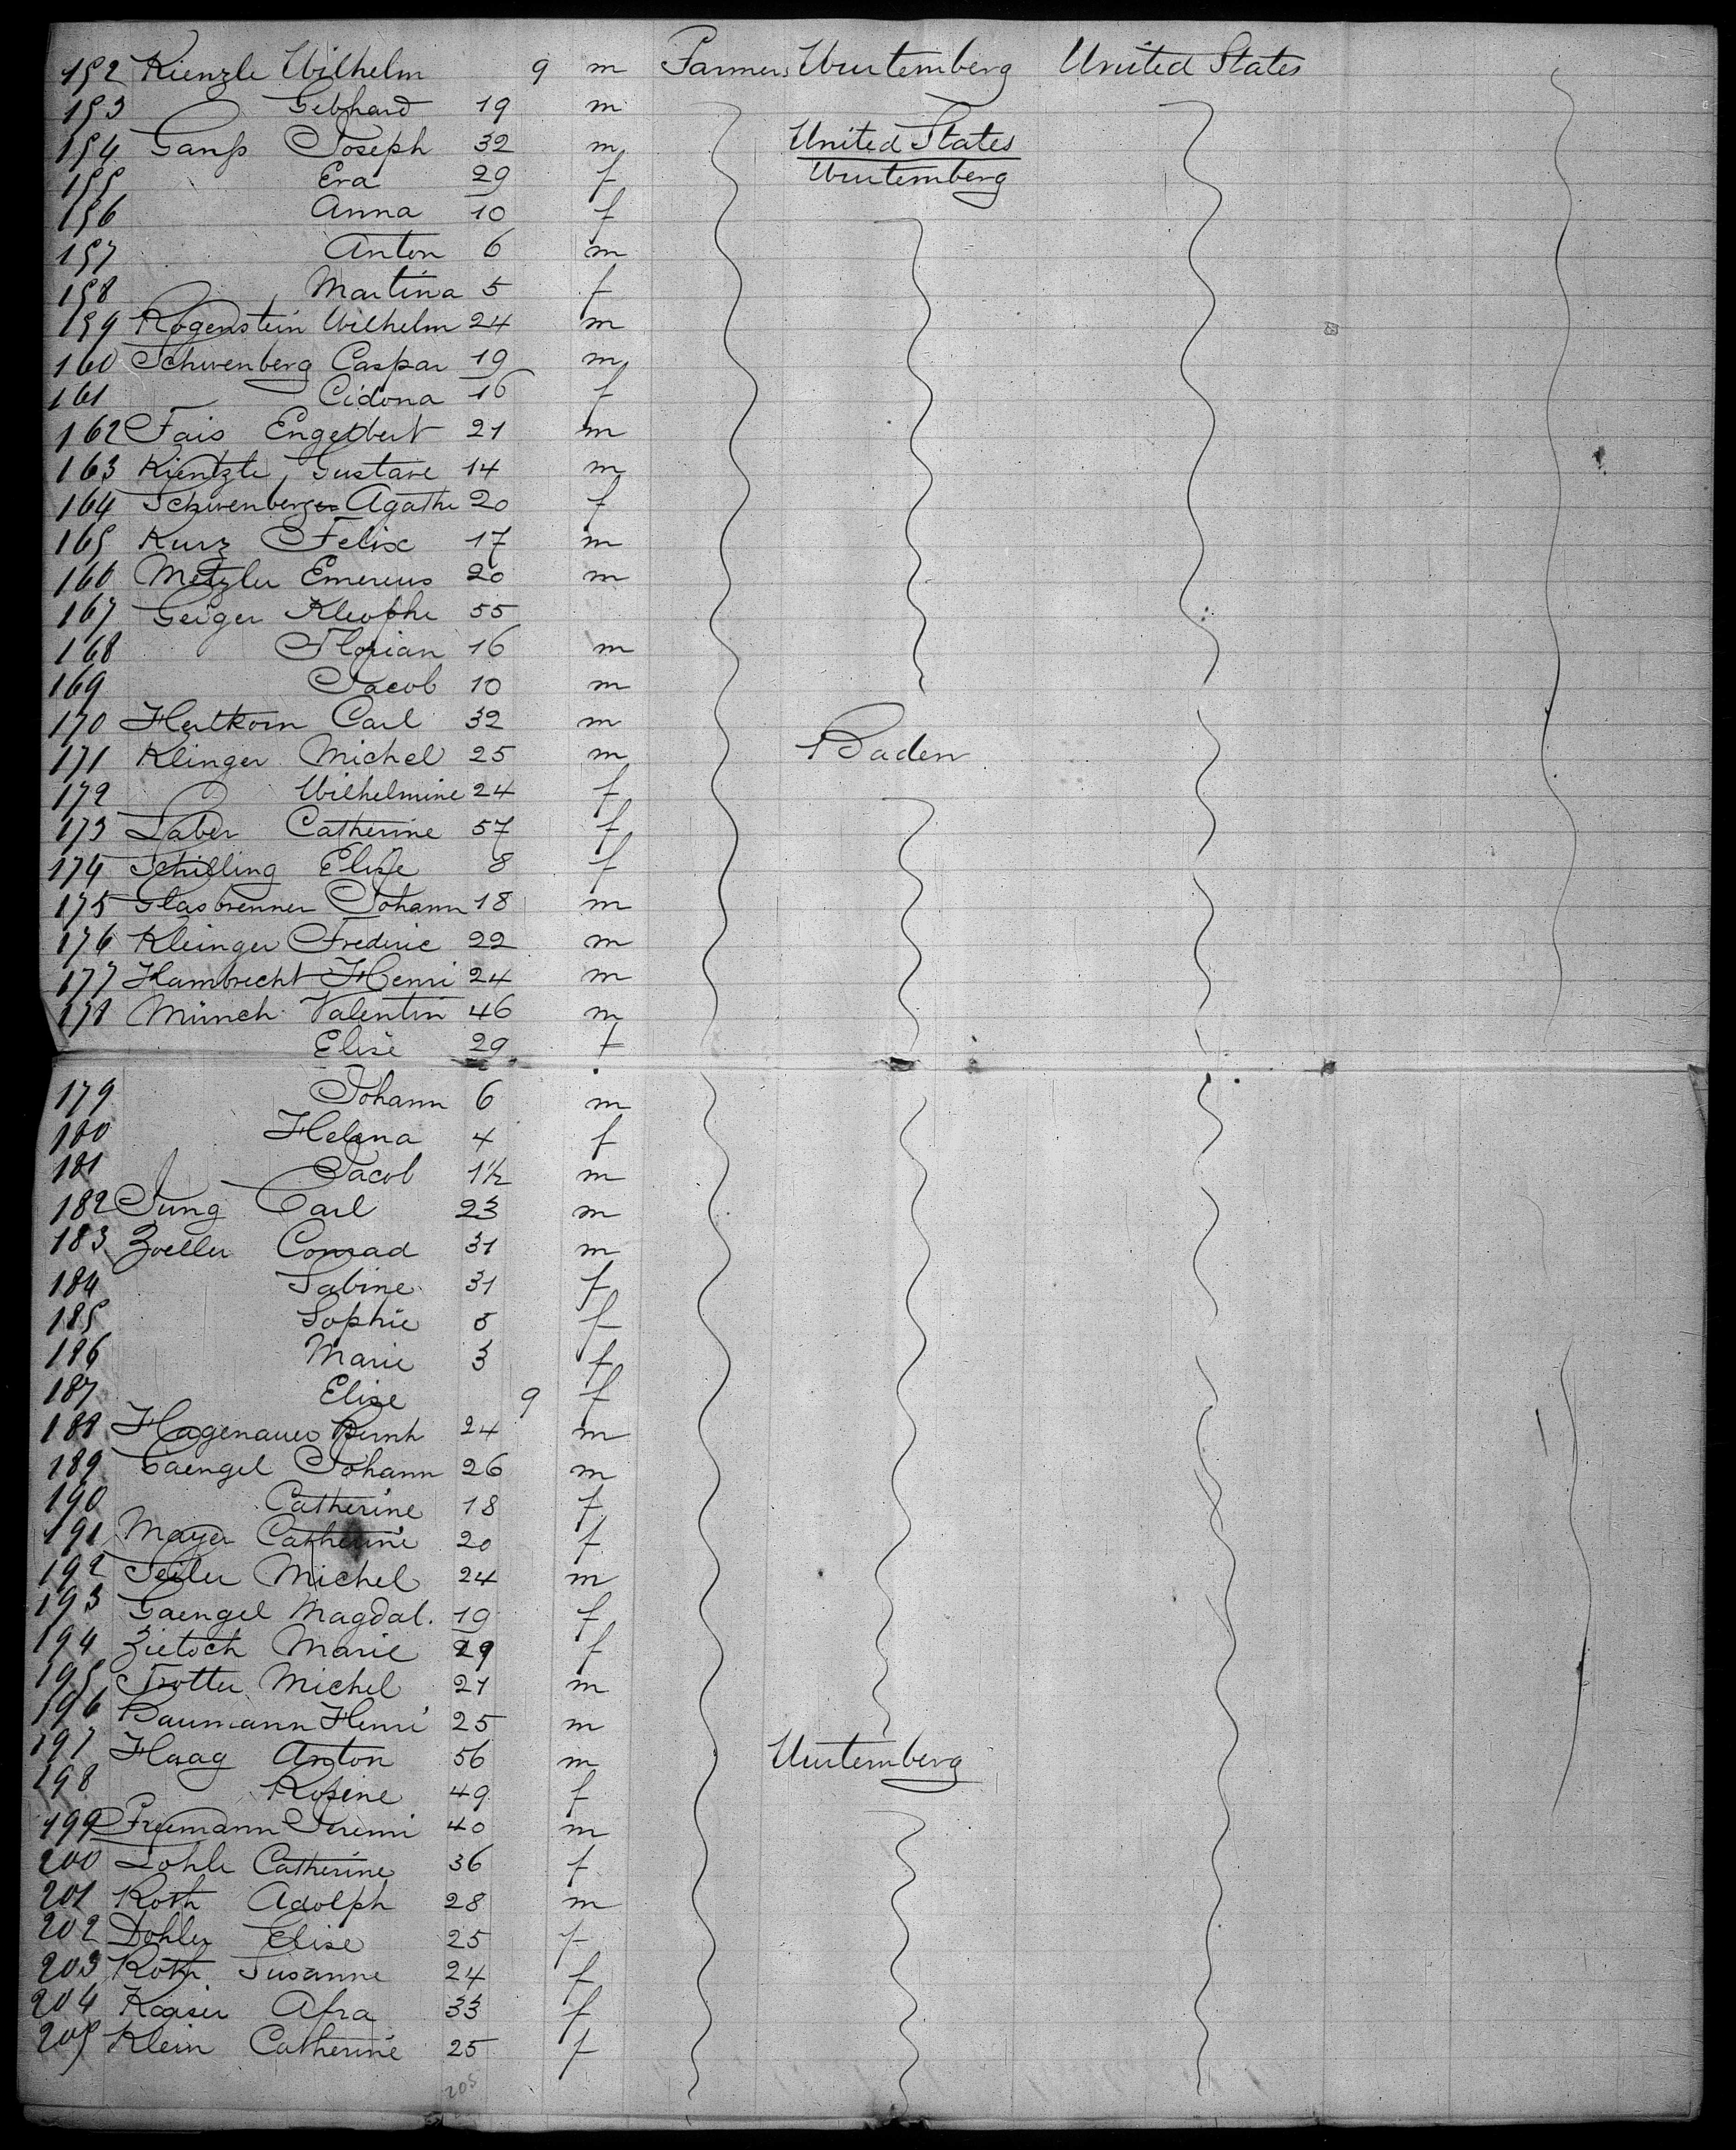 152 Kienzle Wilhelm 9 m Farmers Wurtemberg United States
153 Gebhard 19 m
154 Ganß Joseph 32 m United States
155 Eva 29 f Wurtemberg
156 Anna 10 f
157 Anton 6 m
158 Martina 5 f
159 Rogenstein Wilhelm 24 m
160 Schwenberg Caspar 19 m
161 Cidona 16 f
162 Fais Engelbert 21 m
163 Kientzle Gustave 14 m
164 Schwenberger Agathe 20 f
165 Kurz Felix 17 m
166 Metzler Emereus 20 m
167 Geiger Kleophe 55
168 Florian 16 m
169 Jacob 10 m
170 Hertkorn Carl 32 m
171 Klinger Michel 25 m Baden
172 Wilhelmine 24 f
173 Laber Catherine 57 f
174 Schilling Elise 8 f
175 Glasbrenner Johann 18 m
176 Kleinger Frederic 22 m
177 Hambrecht Henri 24 m
178 Münch Valentin 46 m
Elise 29 f
179 Johann 6 m
180 Helena 4 f
181 Jacob 1½ m
182 Jung Carl 23 m
183 Zoeller Conrad 31 m
184 Sabine 31 f
185 Sophie 5 f
186 Marie 3 f
187 Elise 9 f
188 Hagenauer Bernh 24 m
189 Gaengel Johann 26 m
190 Catherine 18 f
191 Mayer Catherine 20 f
192 Seiler Michel 24 m
193 Gaengel Magdal. 19 f
194 Zietsch Marie 29 f
195 Trotter Michel 21 m
196 Baumann Henri 25 m
197 Haag Anton 56 m Wurtemberg
198 Rosine 49 f
199 Freemann Jeremi 40 m
200 Lohle Catherine 36 f
201 Roth Adolph 28 m
202 Dohler Elise 25 f
203 Roth Susanne 24 f
204 Kaiser Afra 33 f
205 Klein Catherine 25 f
205